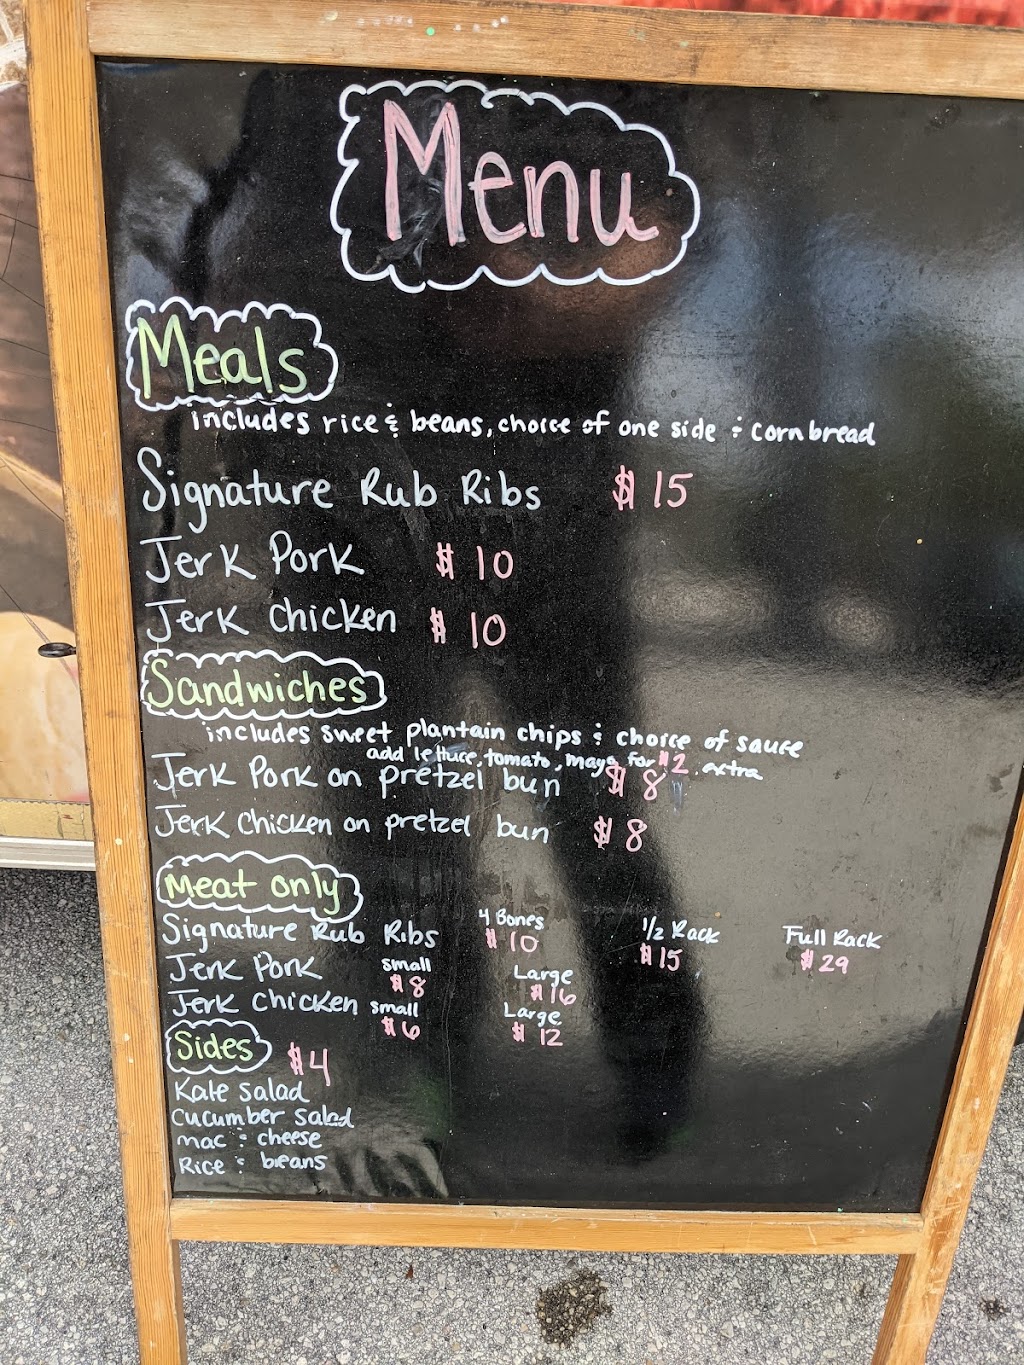 Menu
Meals
includes rice & beans, choice of one side & cornbread
Signature Rub Ribs $15
Jerk Pork $10
Jerk Chicken $10
Sandwiches
includes sweet plantain chips & choice of sauce
add lettuce, tomato, mayo for $2 extra
Jerk Pork on pretzel bun $8
Jerk Chicken on pretzel bun $8
Meat only
Signature Rub Ribs 4 Bones $10 1/2 Rack $15 Full Rack $29
Jerk Pork small $8 Large $16
Jerk Chicken small $6 Large $12
Sides $4
Kale salad
cucumber salad
mac & cheese
Rice & beans